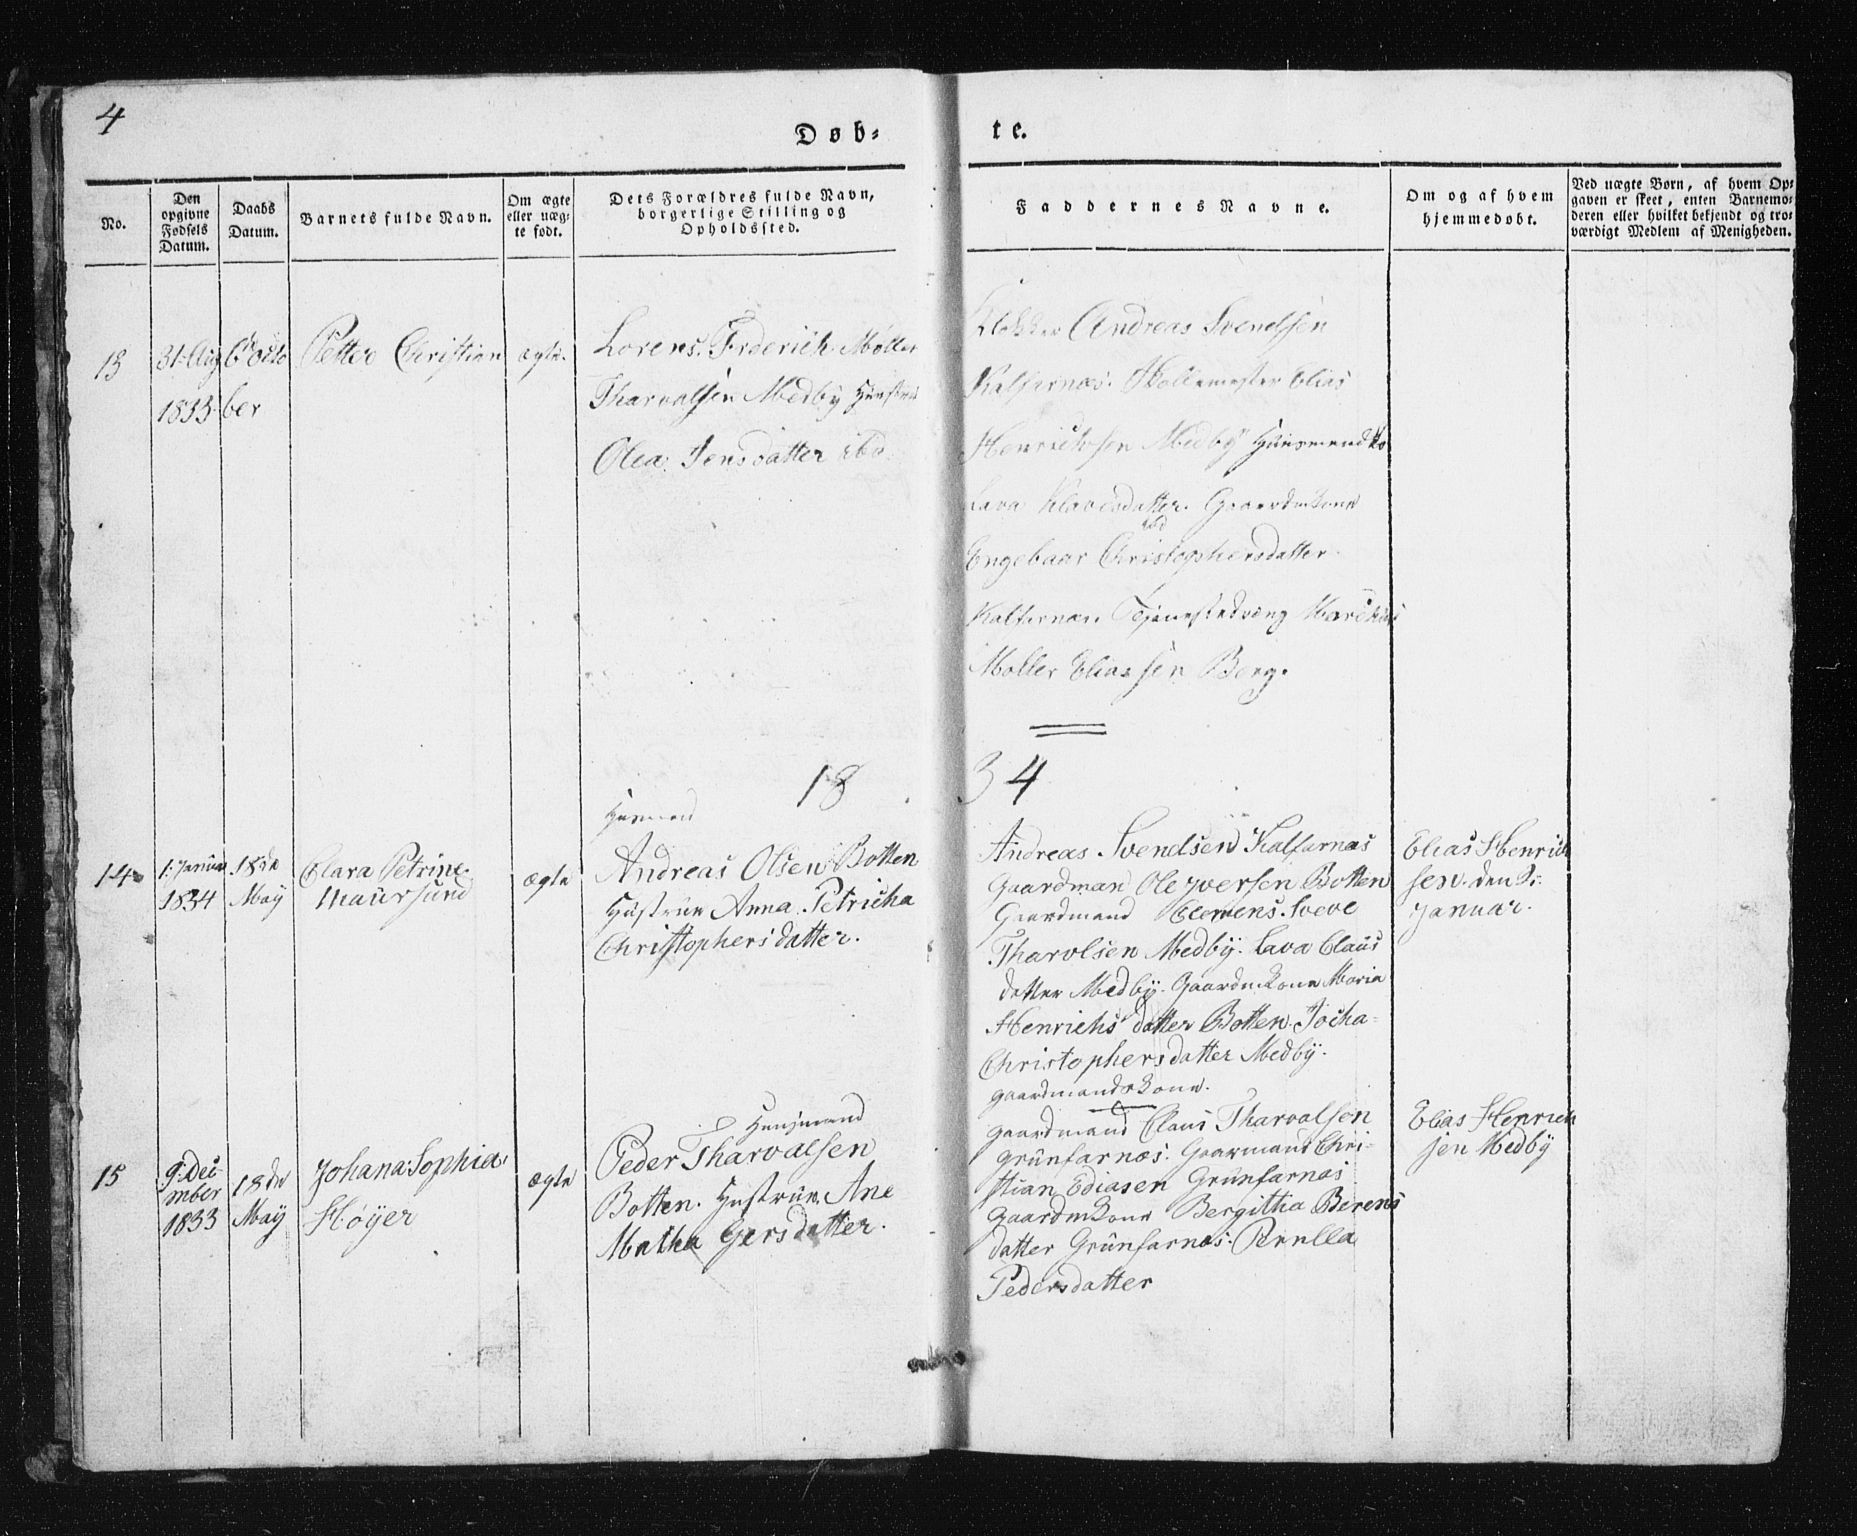 4
Døb=
te.
No.
Den opgivne Fødsels Datum.
Daabs Datum.
Barnets fulde Navn.
Om ægte eller uægte født.
Dets Forældres fulde Navn, borgerlige Stilling og Opholdssted.
Faddernes Navne.
Om og af hvem hjemmedøbt.
Ved uægte Børn, af hvem Opgaven er skeet, enten Barnemoderen eller hvilket bekjendt og troværdigt Medlem af Menigheden.
13
31 Aug
1833
6 Octo
ber
Petter Christian
ægte
Lorens Frderich Møller
Tharvalsen Medby Hustru
Olea Jensdatter ibd
Klokker Andreas Svendsen
Kalfarnæs. Skollemester Elias
Henrichsen Medby Huusmandsko
Lava Klavesdatter. Gaardmkone
Engebaar Christophersdatter
Kalfarnæs Tjenestedreng Marchus
Møller Eliassen Berg.
18
34
14
1. Januar
1834
18de
May
Clara Petrine
Maursund
ægte
Husmand
Andreas Olsen Botten
Hustrue Anna Petricha
Christophersdatter.
Andreas Svendsen Kalfarnas
Gaardman Ole Iversen Botten
Gaardmand Clemens Sveve
Tharvlsen Medby. Lava Claus
datter Medby. Gaardmkone Maria
Henrichs datter Botten. Jocha=
Christophersdatter Medby.
gaardmandskone.
Elias Henrich
sen. den 2.
Januar.
15
9. Dec
mber
1833
18de
May
Johana Sophia
Høyer
ægte
Huusmand
Peder Tharvalsen
Botten. Hustrue Ane
Matha Gersdatter.
gaardmand Claus Tharvalsen
Grünfarnæs. Gaarmand Chri-
stian Ediasen Grünfarnas
Gaardmkone Bergitha Berens
datter Grünfarnæs. Pernlla
Pedersdatter
Elias Henrich
sen Medby